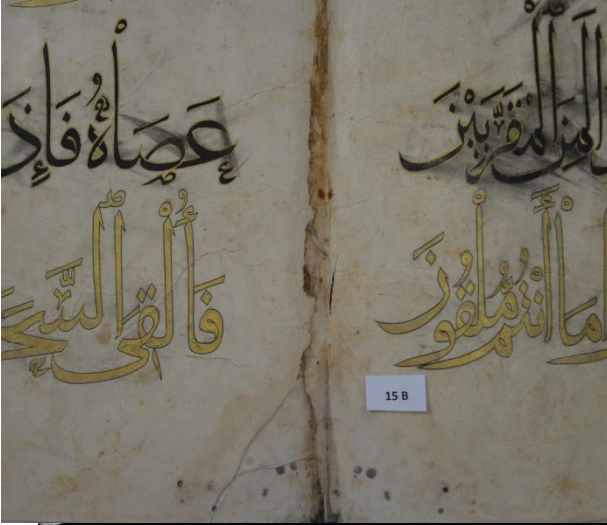 لَمِنَ الْمُقَرَّبِيْنَ
مَا أَنْتُمْ مُلْقُونَ
15 B
عَصَاهُ فَإِذَ
فَأُلْقِىَ السَّحَ